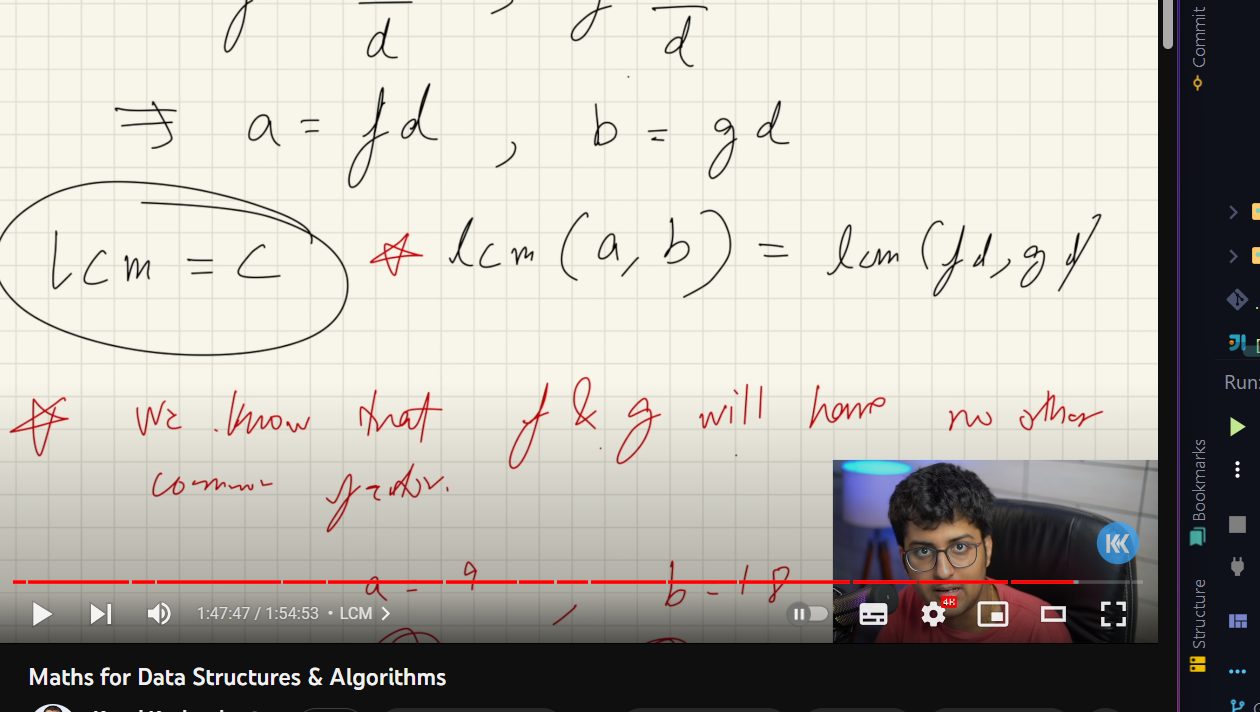 d d
⇒ a = fd , b = gd
LCM = C ☆ lcm (a, b) = lcm (fd, gd)
☆ We know that f & g will have no other
common factor.
a = 9 , b = 18
1:47:47 / 1:54:53 • LCM >
4K
Maths for Data Structures & Algorithms
Commit
Run:
Bookmarks
Structure